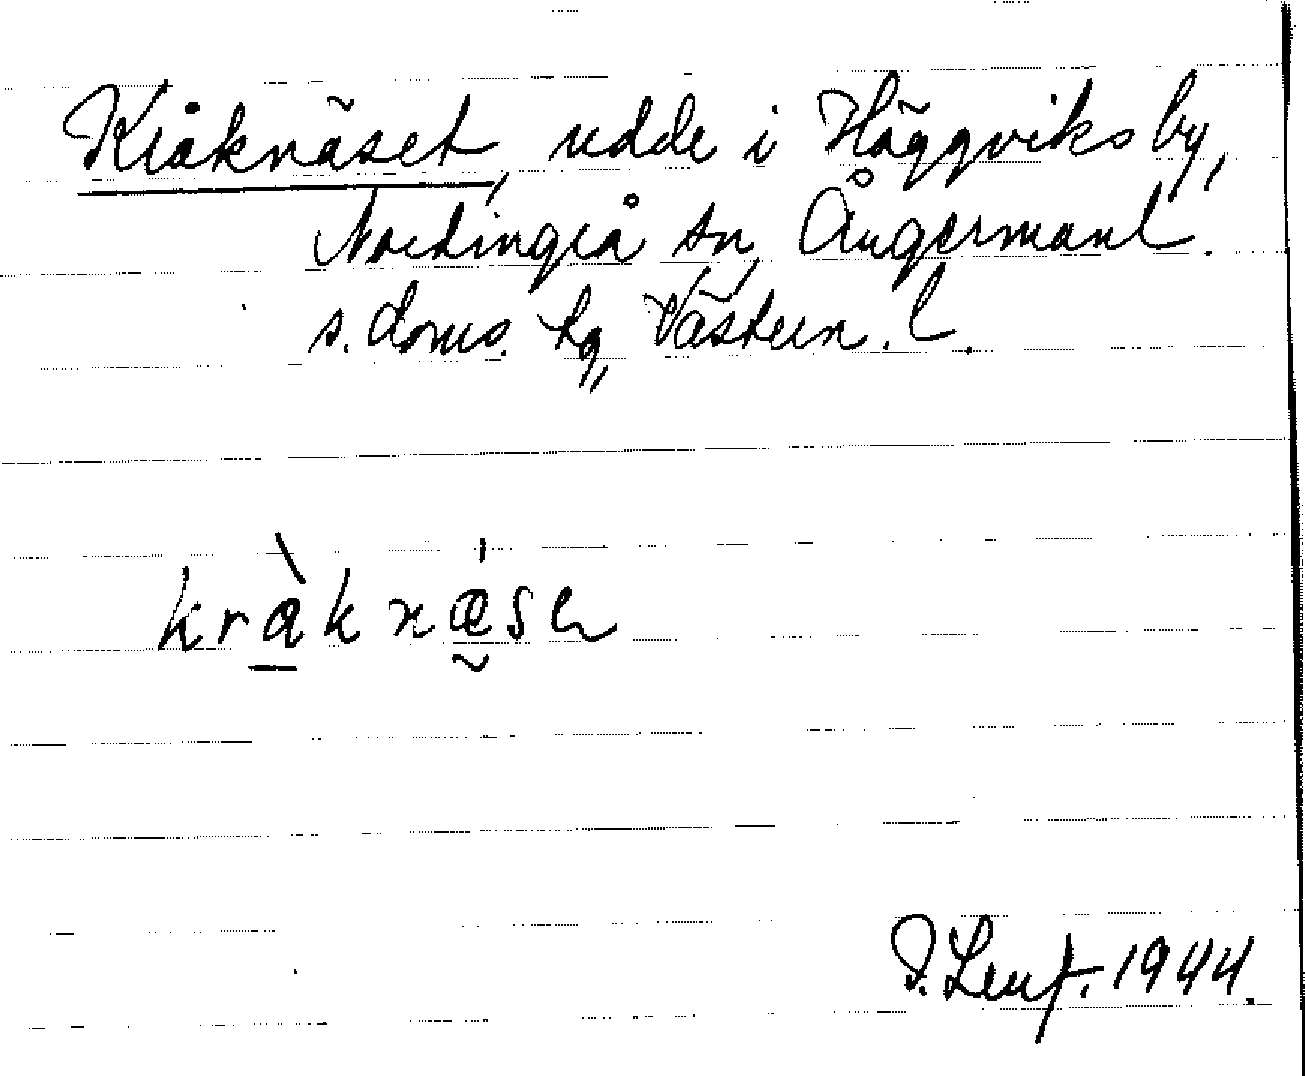 Kråknäset, udde i Häggviks by,
Nordingrå sn, Ångermanl.
s. doms. hg, Västern. l.
kràknæsen
1944.